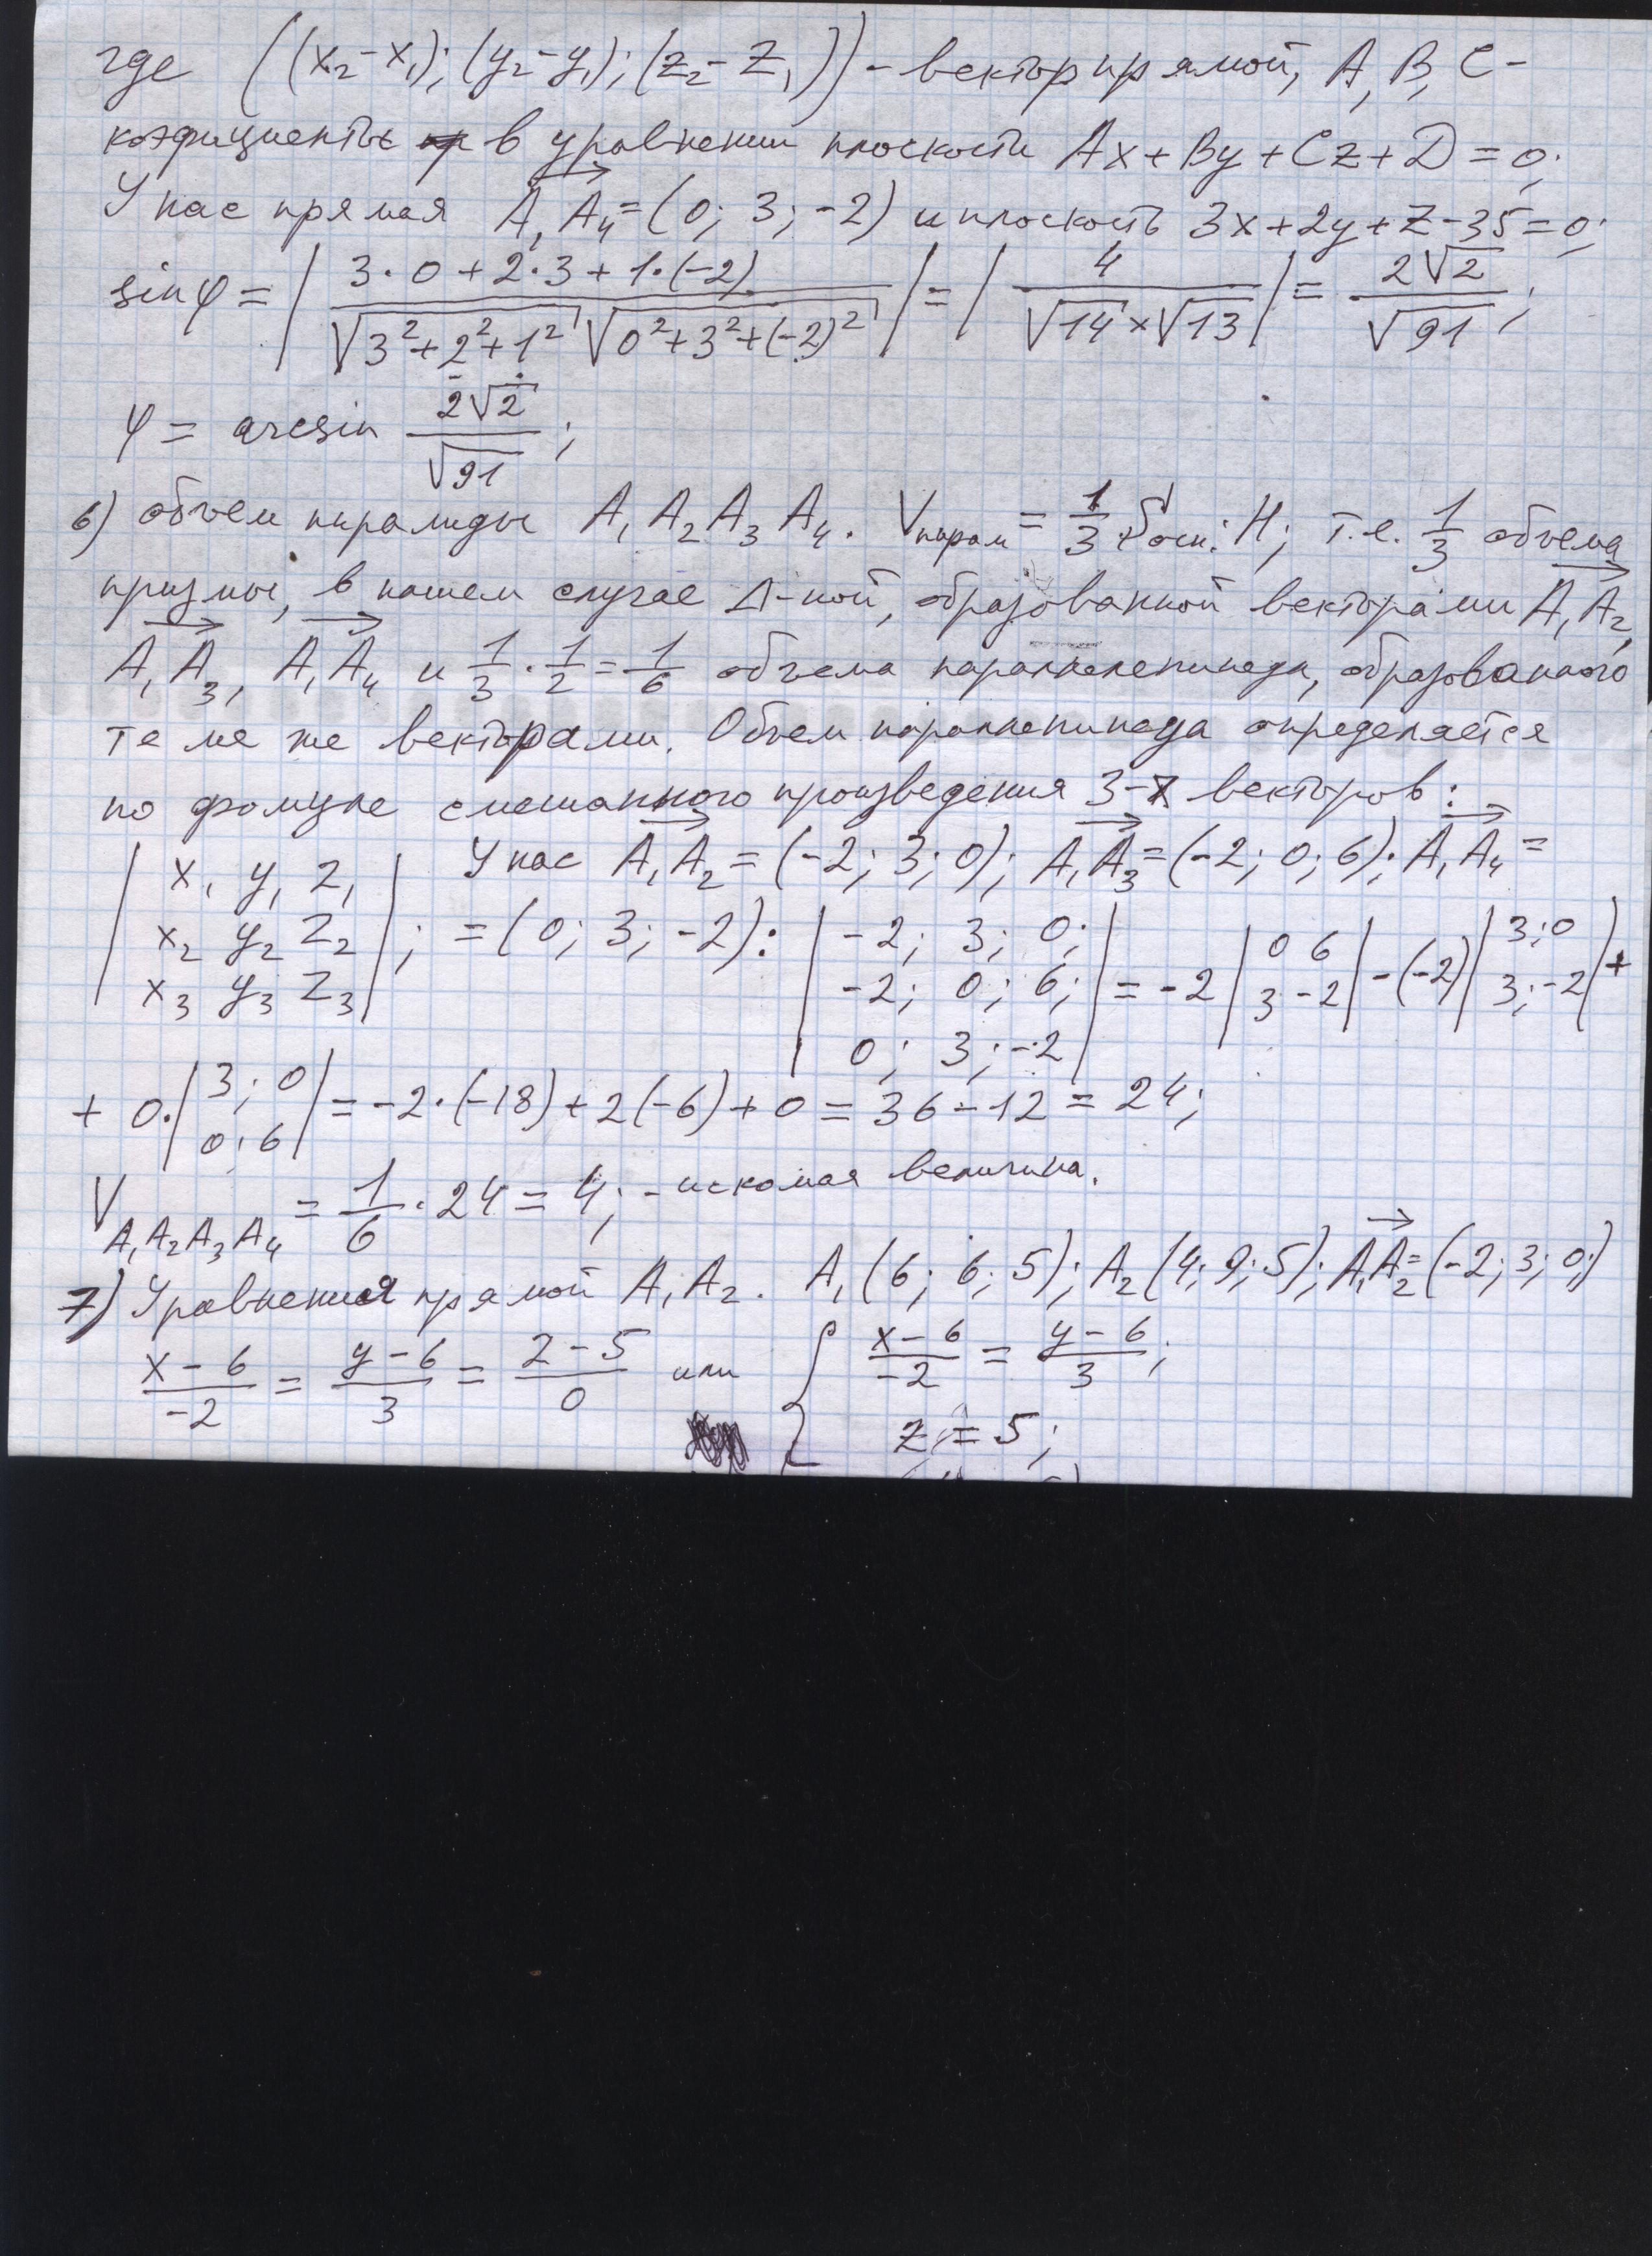 где ((x₂-x₁); (y₂-y₁); (z₂-z₁)) - вектор прямой, A, B, C -
коэфициенты в уравнении плоскости Ax + By + Cz + D = 0;
У нас прямая A₁A₄ = (0; 3; -2) и плоскость 3x+2y+z-35=0;
sin φ = | (3·0+2·3+1·(-2)) / (√(3²+2²+1²) √(0²+3²+(-2)²)) | = | 4 / (√14 × √13) | = 2√2 / √91 ;
φ = arcsin 2√2 / √91 ;
6) объем пирамиды A₁A₂A₃A₄. Vпирам = 1/3 · Sосн. · H; т.е. 1/3 объема
призмы, в нашем случае Δ-ной, образованной векторами A₁A₂,
A₁A₃, A₁A₄ и 1/3 · 1/2 = 1/6 объема параллелепипеда, образованного
теме же векторами. Объем параллепипеда определяется
по фомуле смешанного произведения 3-х векторов:
| x₁ y₁ z₁ | У нас A₁A₂ = (-2; 3; 0); A₁A₃ = (-2; 0; 6); A₁A₄ =
| x₂ y₂ z₂ | ; = (0; 3; -2): | -2; 3; 0; | -2; 0; 6; | 0; 3; -2 | = -2 | 0 6 | 3 -2 | - (-2) | 3; 0 | 3; -2 | +
| x₃ y₃ z₃ |
+ 0 · | 3; 0 | 0; 6 | = -2·(-18) + 2(-6) + 0 = 36 - 12 = 24;
V A₁A₂A₃A₄ = 1/6 · 24 = 4; - искомая величина.
7) Уравнения прямой A₁A₂. A₁(6; 6; 5); A₂(4; 9; 5); A₁A₂ = (-2; 3; 0;)
(x-6)/-2 = (y-6)/3 = (z-5)/0 или { (x-6)/-2 = (y-6)/3 ;
z = 5;